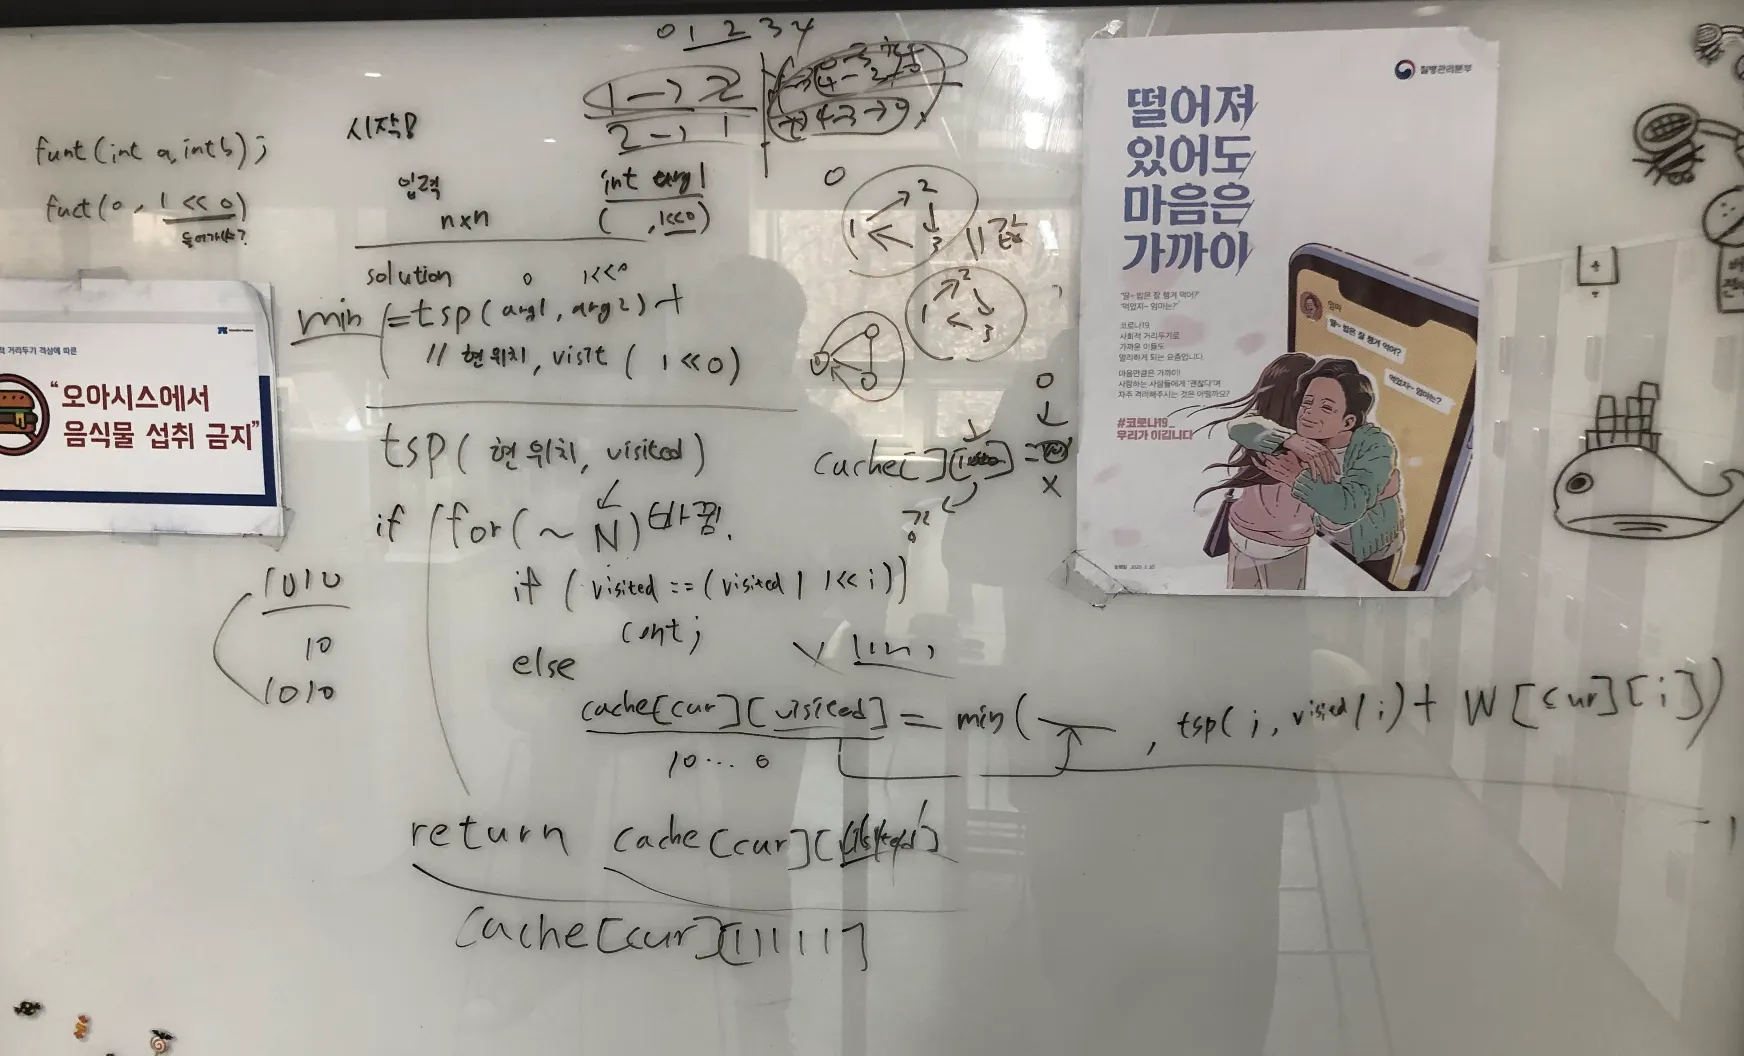 0 1 2 3 4
1 → 2
2 → 1
→ 4-3 → 0
funt(int a, int b);
fuct(0, 1 << 0)
들어가나?
시작?
입력
n×n
int arg1
( , 1<<0)
solution 0 1<<0
min = tsp(arg1, arg2) +
// 현위치, visit ( 1 << 0)
0
1 2 3
1 2 3
tsp( 현위치, visited)
if for( ~ N) 바뀜.
if ( visited == (visited | 1 << i))
cont;
else
cache[cur][visited] = min( , tsp(i, visited | i) + W[cur][i])
10 ... 0
return cache[cur][visited]
cache[cur][11111]
1010
10
1010
cache[][] =
0
X
적 거리두기 격상에 따른
“오아시스에서
음식물 섭취 금지”
질병관리본부
떨어져
있어도
마음은
가까이
"딸~ 밥은 잘 챙겨 먹어?"
"먹었지~ 엄마는?"
코로나19
사회적 거리두기로
가까운 이들도
멀리하게 되는 요즘입니다.
마음만큼은 가까이!
사랑하는 사람들에게 "괜찮다"며
자주 격려해주시는 것은 어떨까요?
#코로나19_
우리가 이깁니다
엄마
딸~ 밥은 잘 챙겨 먹어?
먹었지~ 엄마는?